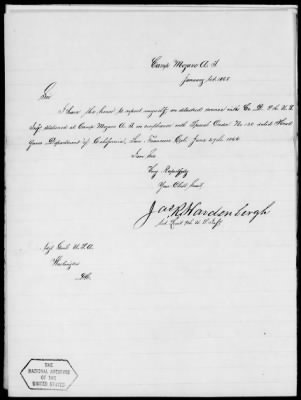 Camp Mojave A. T.
January 1st 1868
Sir
I have the honor to report myself on detached service with Co. D. 9th U. S.
Inft stationed at Camp Mojave A. T. in compliance with Special Order No 120 dated Head
Quars Department of California, San Francisco Cal. June 27th 1866
I am Sir
Very Respectfully
Your Obdt Servt
Jas R. Hardenbergh
1st Lieut 9th U. S. Inft
Genl U.S.A.
Washington
D.C.
THE
NATIONAL ARCHIVES
OF THE
UNITED STATES